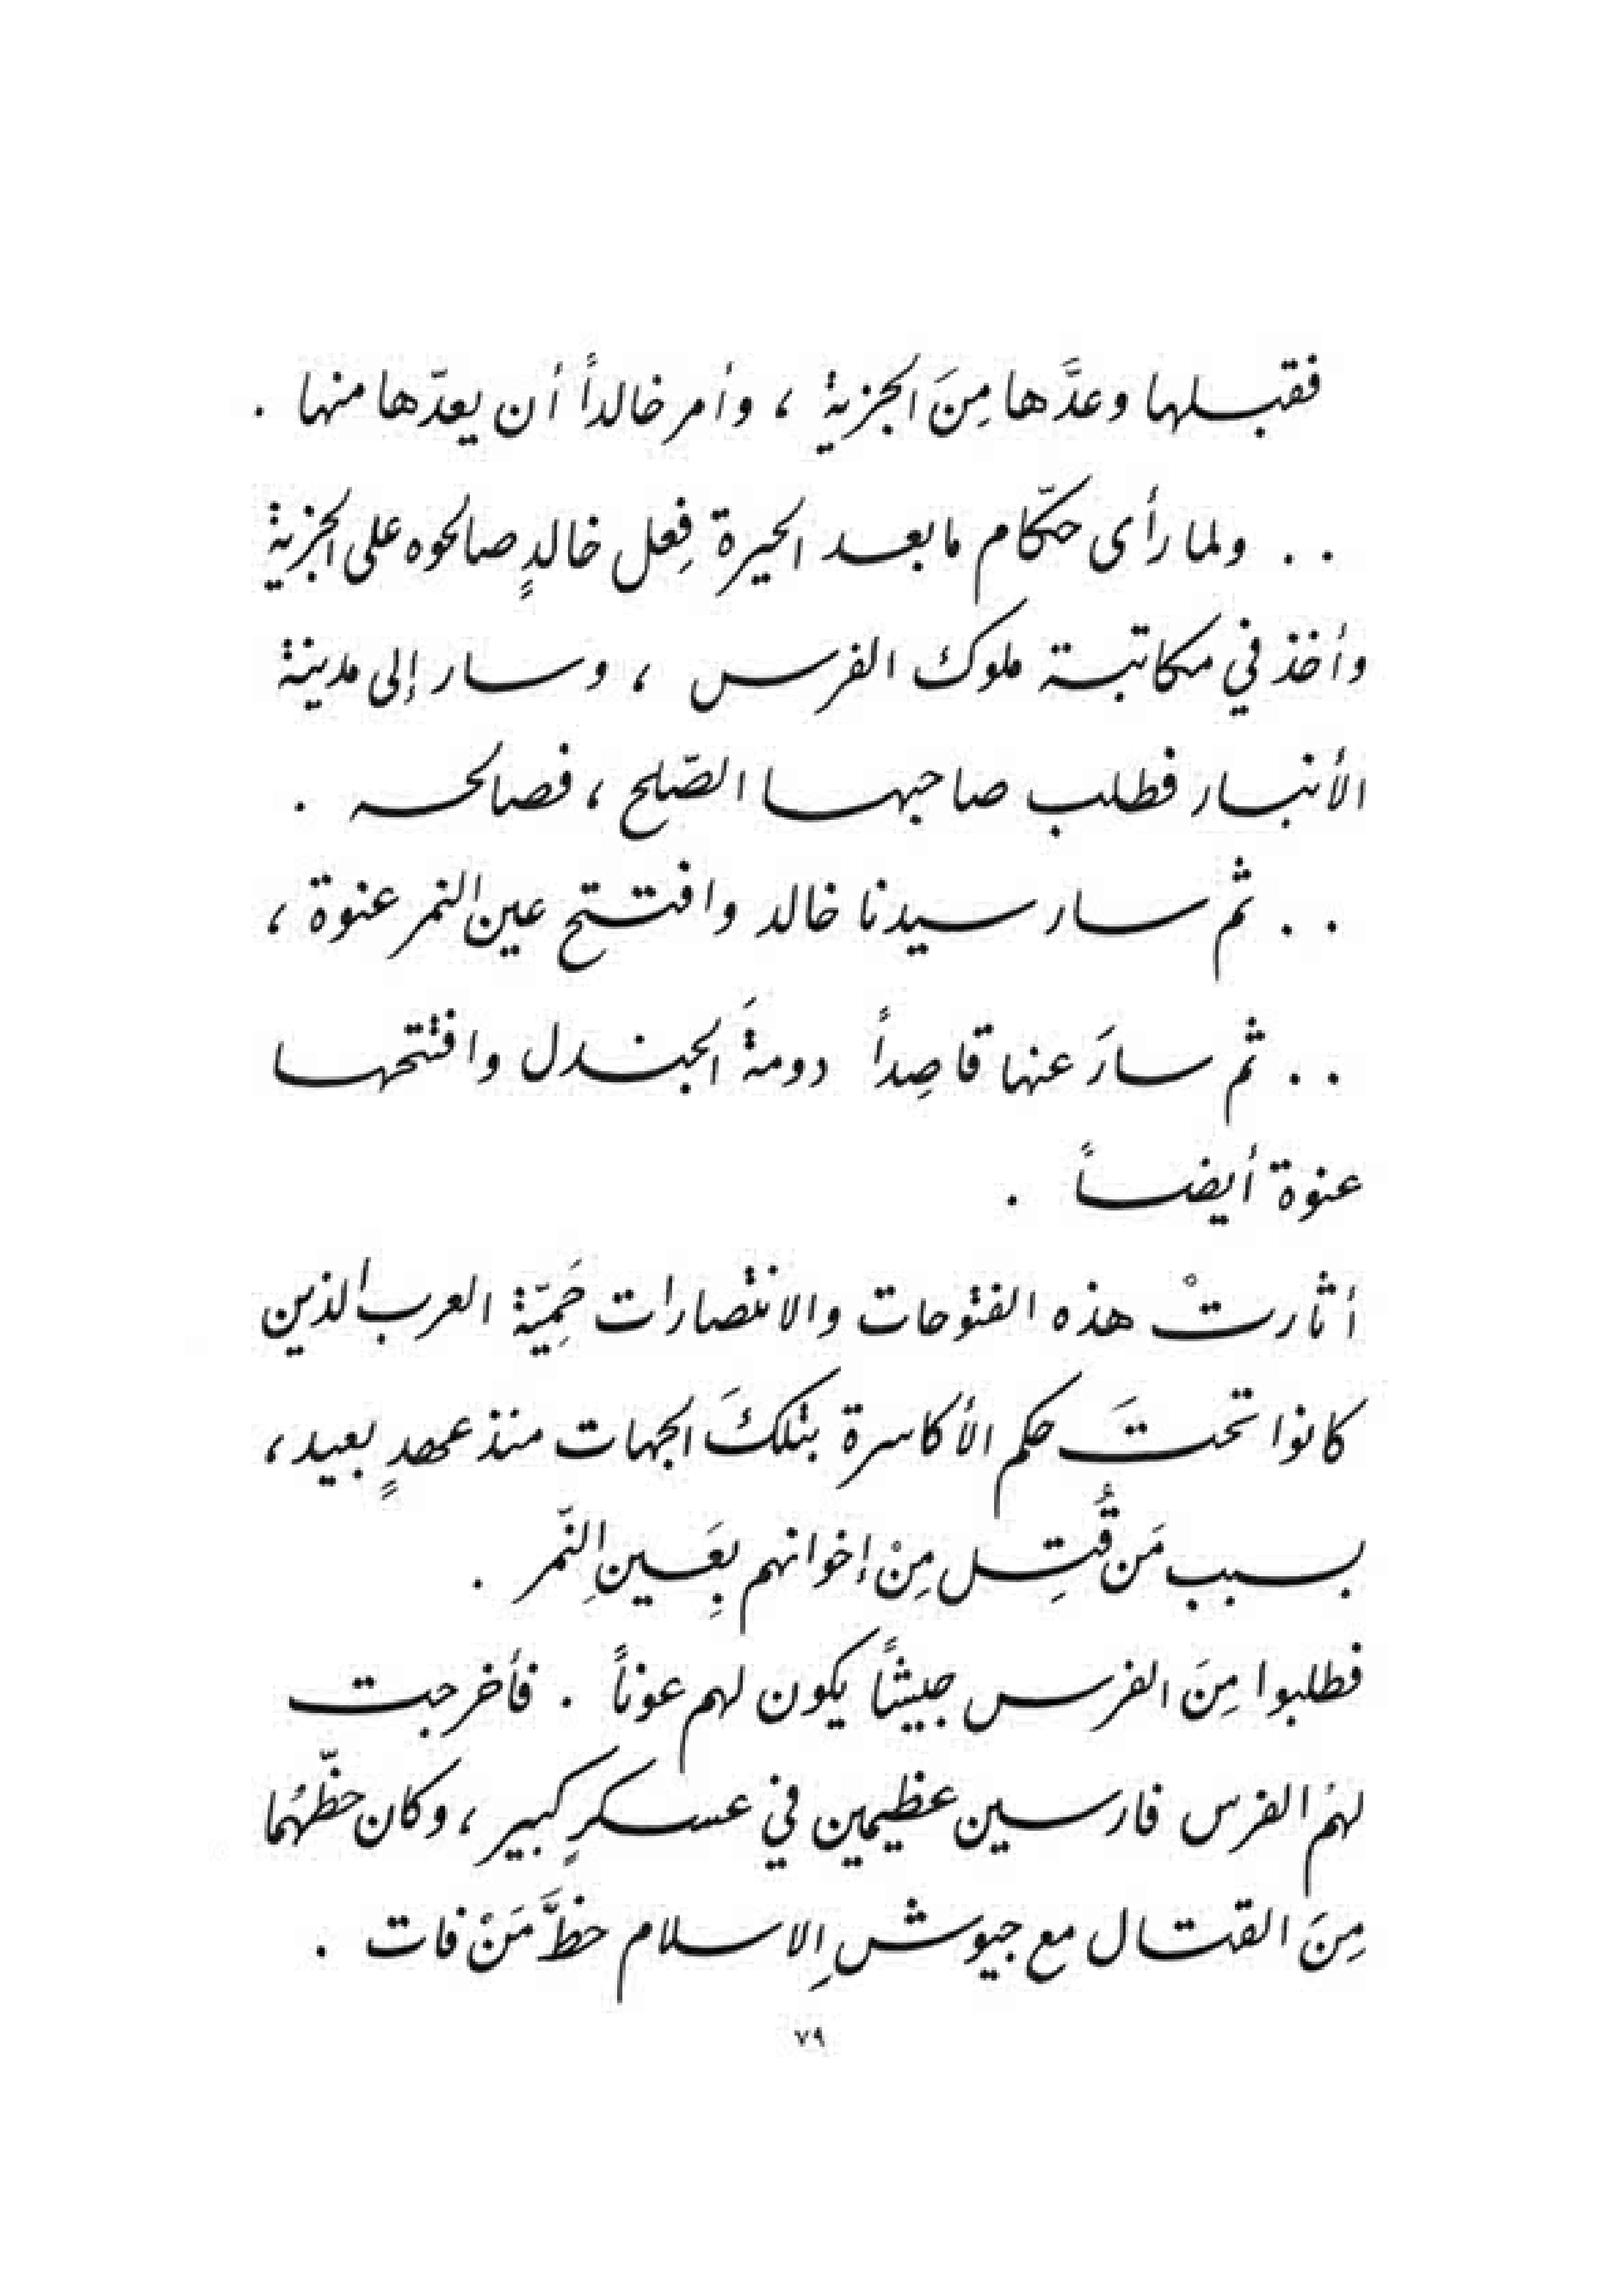 فقبلها وعدَّها مِنَ الجزية ، وأمر خالداً أن يعدّها منها .
. . ولما رأى حكّام مابعد الحيرة فِعل خالدٍ صالحوه على الجزية
وأخذ في مكاتبة ملوك الفرس ، وسار إلى مدينة
الأنبار فطلب صاحبها الصّلح ، فصالحه .
. . ثم سار سيدنا خالد وافتتح عين النمر عنوة ،
. . ثم سارَ عنها قاصِداً دومةَ الجندل وافتتحها
عنوة أيضاً .
أثارتْ هذه الفتوحات والانتصارات حَمِيّة العرب الذين
كانوا تحتَ حكم الأكاسرة بتلكَ الجهات منذ عهدٍ بعيد ،
بسبب مَن قُتِل مِنْ إخوانهم بِعَينِ النّمر .
فطلبوا مِنَ الفرس جيشاً يكون لهم عوناً . فأخرجت
لهمُ الفرس فارسين عظيمين في عسكرٍ كبير ، وكان حظّهُما
مِنَ القتال مع جيوشِ الاسلام حظَّ مَنْ فات .
٧٩